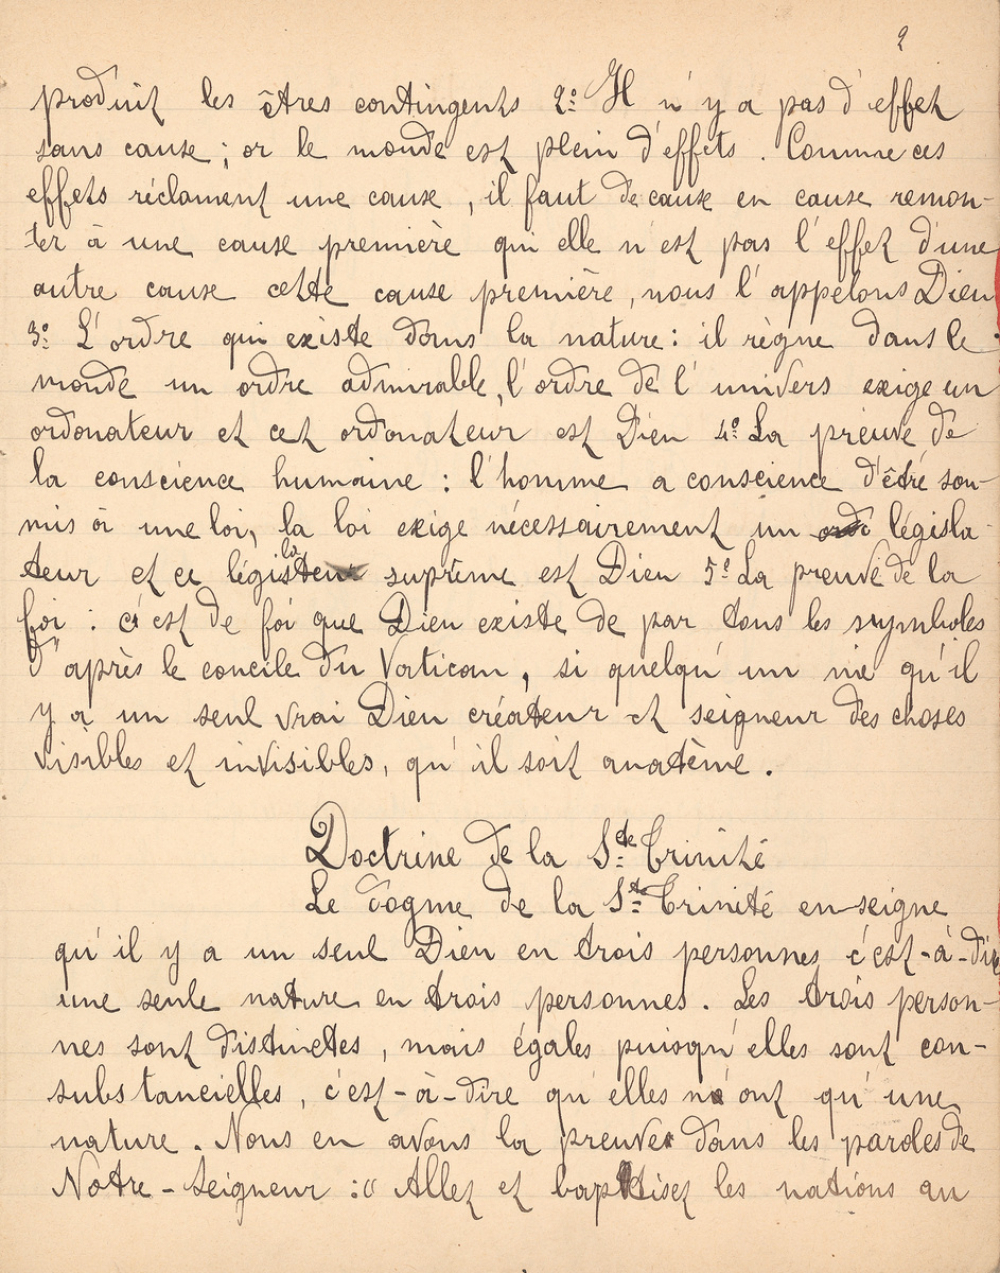 2
produit les êtres contingents 2º Il n'y a pas d'effet
sans cause ; or le monde est plein d'effets . Comme ces
effets réclament une cause , il faut de cause en cause remon-
ter à une cause première qui elle n'est pas l'effet d'une
autre cause cette cause première , nous l'appelons Dieu
3º L'ordre qui existe dans la nature : il règne dans le
monde un ordre admirable, l'ordre de l'univers exige un
ordonateur et cet ordonateur est Dieu 4º La preuve de
la conscience humaine : l'homme a conscience d'être sou-
mis à une loi, la loi exige nécessairement un législa-
teur et ce législateur suprême est Dieu 5º La preuve de la
foi : c'est de foi que Dieu existe de par tous les symboles
d'après le concile du Vatican , si quelqu'un nie qu'il
y a un seul vrai Dieu créateur et seigneur des choses
visibles et invisibles, qu'il soit anatème .
Doctrine de la Ste Trinité
Le dogme de la Ste Trinité enseigne
qu'il y a un seul Dieu en trois personnes c'est-à-dire
une seule nature en trois personnes . Les trois person-
nes sont distinctes , mais égales puisqu'elles sont con-
substancielles , c'est-à-dire qu'elles n'ont qu'une
nature . Nous en avons la preuve dans les paroles de
Notre-Seigneur : " Allez et baptisez les nations au